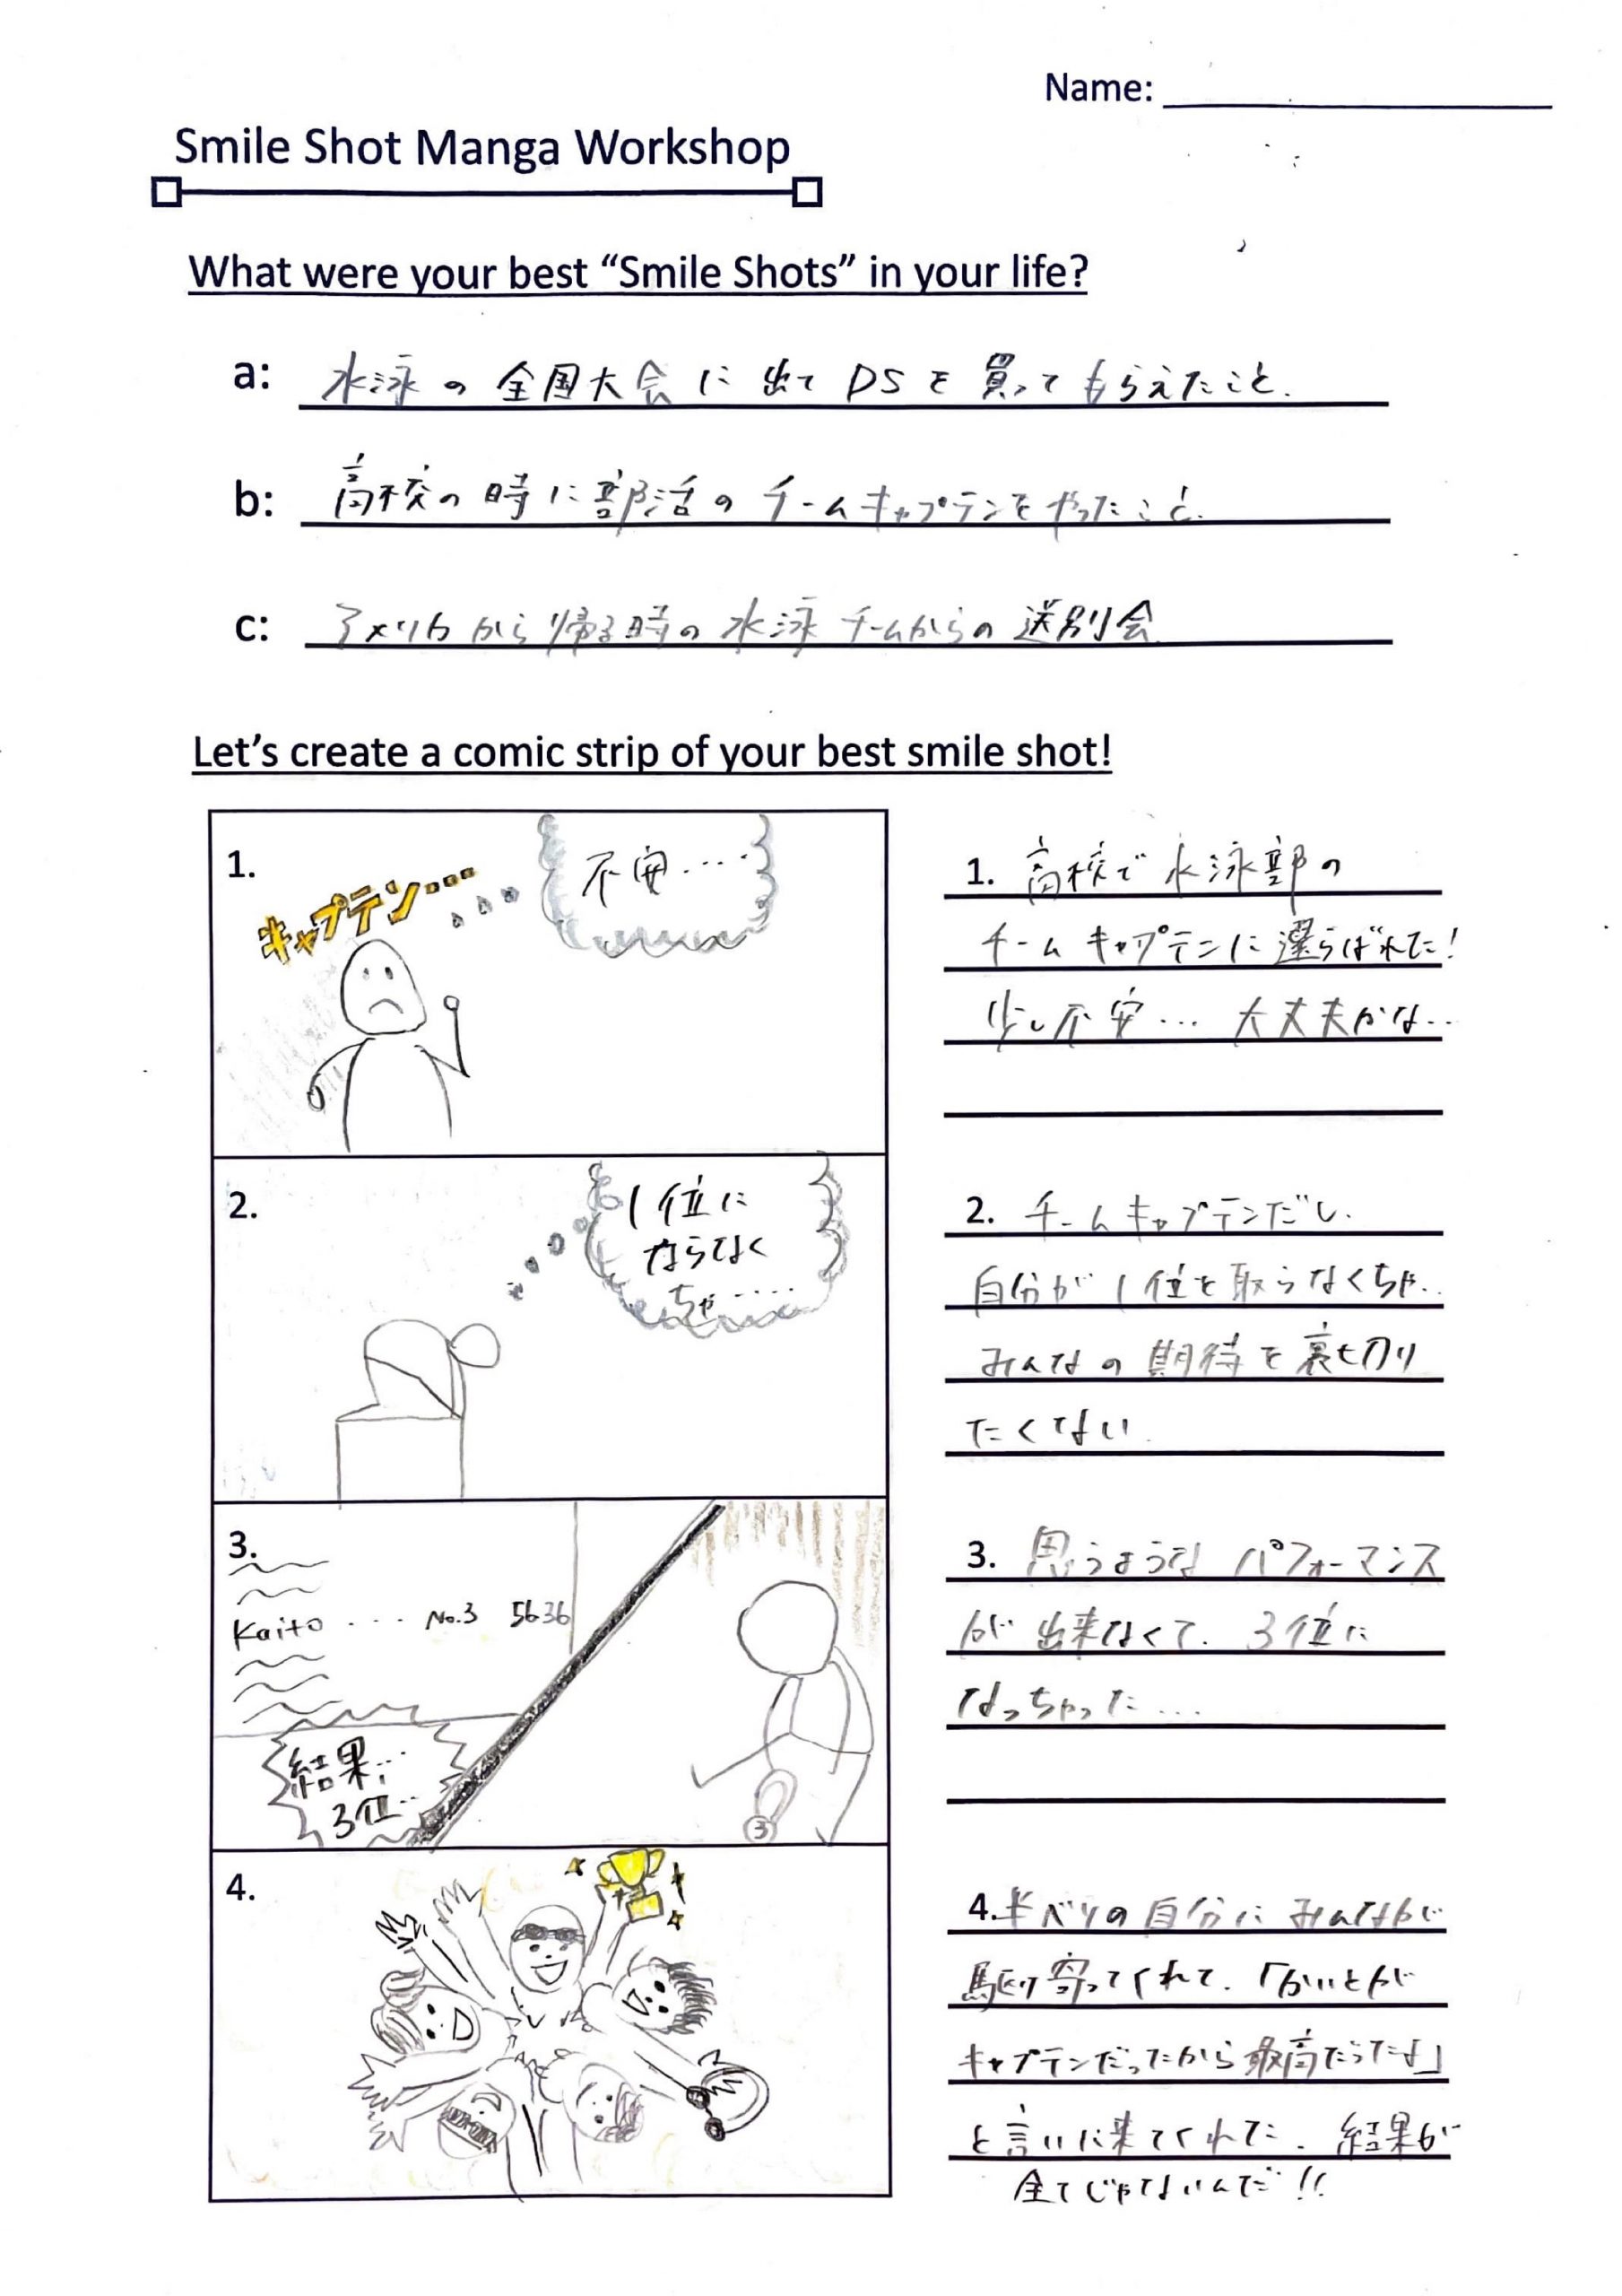 Name:
Smile Shot Manga Workshop
What were your best “Smile Shots” in your life?
a: 水泳の全国大会に出てDSを買ってもらえたこと.
b: 高校の時に部活のチームキャプテンをやったこと.
c: アメリカから帰る時の水泳チームからの送別会
Let’s create a comic strip of your best smile shot!
1.
キャプテン....
不安....
1. 高校で水泳部の
チームキャプテンに選らばれた!
少し不安... 大丈夫かな...
2.
1位に
ならなく
ちゃ....
2. チームキャプテンだし.
自分が1位を取らなくちゃ..
みんなの期待を裏切り
たくない.
3.
Kaito .... No.3 5636
結果...
3位..
3
3. 思うようなパフォーマンス
が出来なくて. 3位に
なっちゃった...
4.
4. 半ベソの自分にみんなが
駆け寄ってくれて.「かいとが
キャプテンだったから最高だったよ」
と言いに来てくれた. 結果が
全てじゃないんだ!!